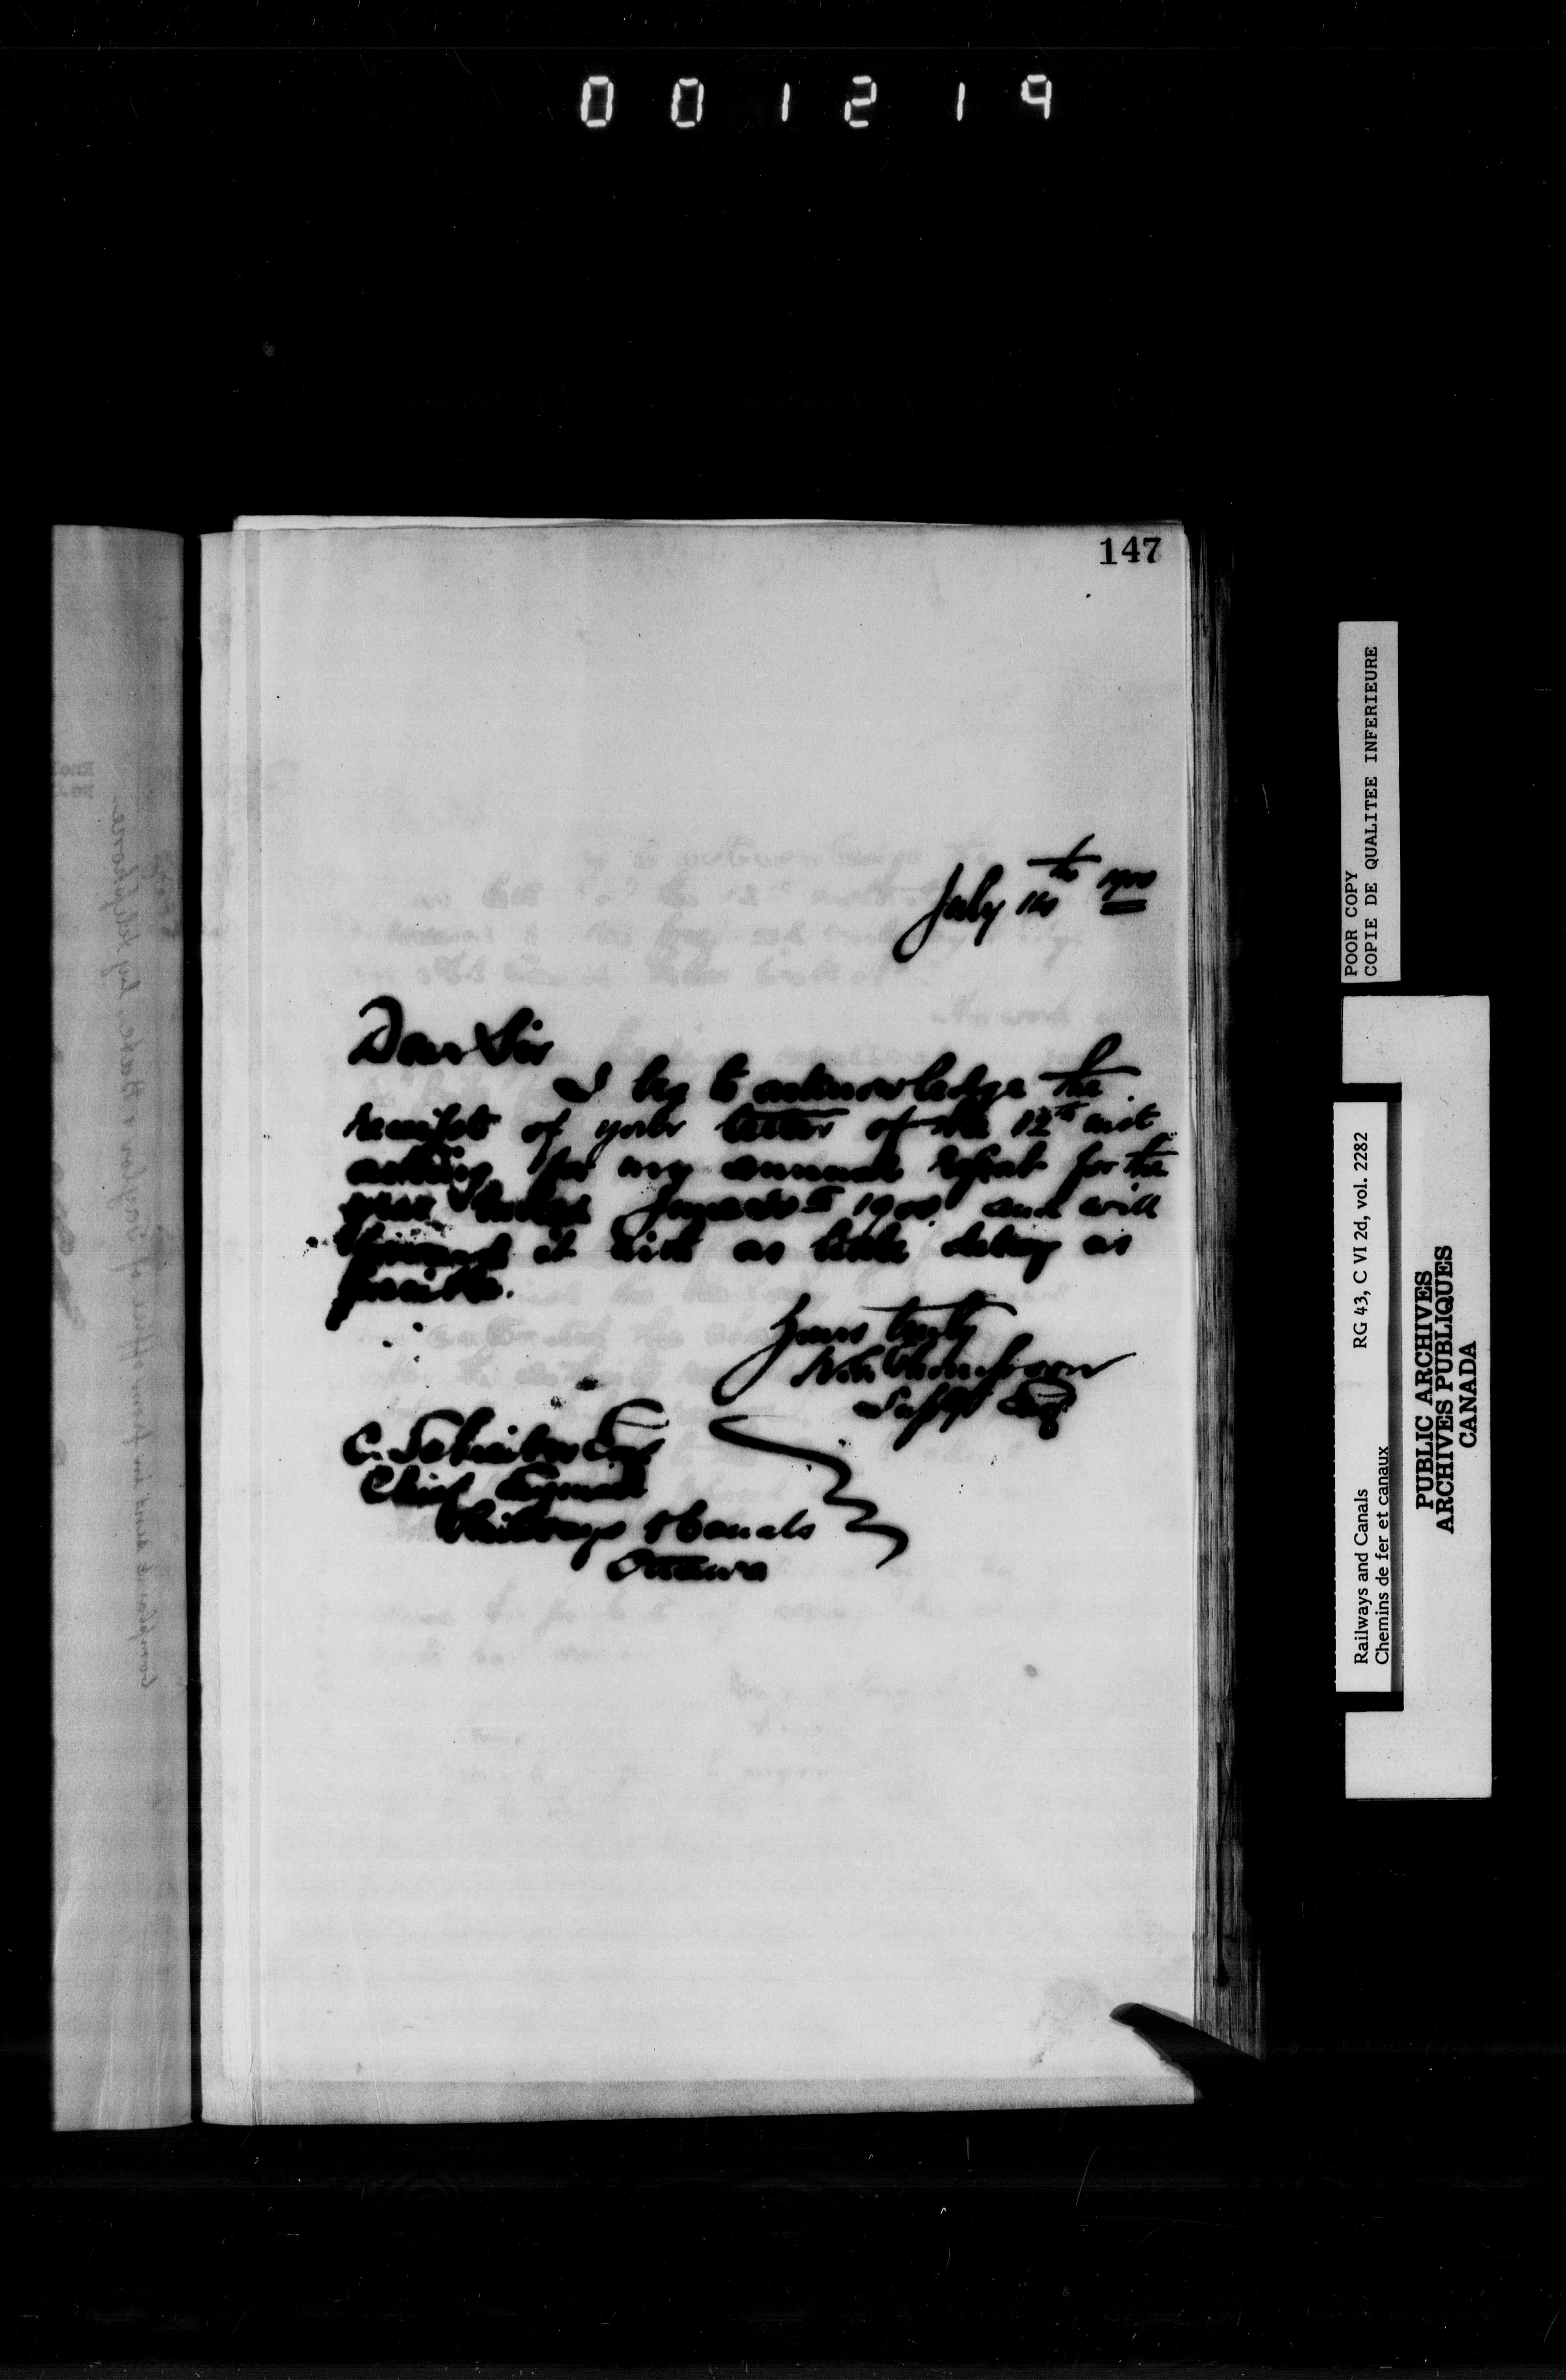 001219
147
July 14th 1900
Dear Sir
I beg to acknowledge the
receipt of your letter of the 12th inst
asking for my annual report for the
year ended June 30th 1900 and will
forward it with as little delay as
possible.
Yours truly
Supt Eng
C. Schreiber Esq
Chief Engineer
Railways & Canals
Ottawa
POOR COPY
COPIE DE QUALITEE INFERIEURE
Railways and Canals RG 43, C VI 2d, vol. 2282
Chemins de fer et canaux
PUBLIC ARCHIVES
ARCHIVES PUBLIQUES
CANADA